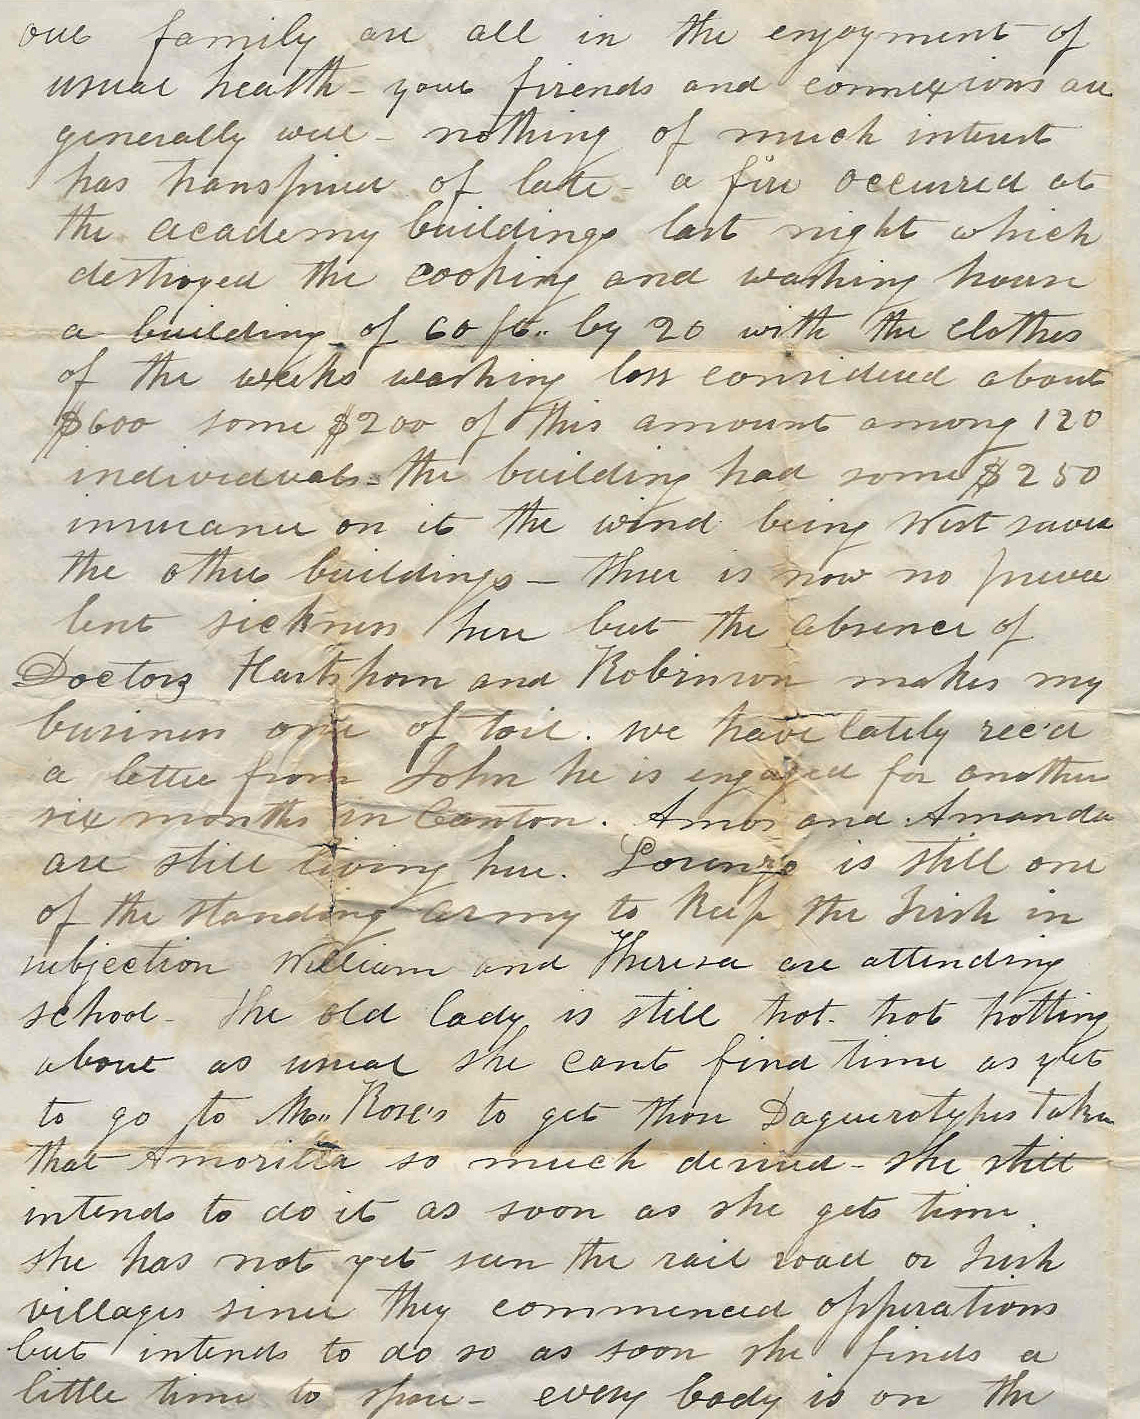 our family are all in the enjoyment of
usual health - your firends and connexions are
generally well - nothing of much interest
has transpired of late - a fire occurred at
the academy buildings last night which
destroyed the cooking and washing house
a building of 60 ft.. by 20 with the clothes
of the weeks washing loss considered about
$600 some $200 of this amount among 120
individuals = the building had some $250
insurance on it the wind being West saved
the other buildings - there is now no preva
lent sickness here but the absence of
Doctors Hartshorn and Robinson makes my
business one of toil. we have lately rec'd
a letter from John he is engaged for another
six months in Canton. Amos and Amanda
are still living here. Lorenzo is still one
of the standing army to keep the Irish in
subjection William and Theresa are attending
school - The old lady is still trot. trot trotting
about as usual she cant find time as yet
to go to Mr.. Rose's to get those Daguerotypes taken
that Amorilla so much desired - she still
intends to do it as soon as she gets time.
she has not yet seen the rail road or Irish
villages since they commenced opperations
but intends to do so as soon she finds a
little time to spare - every body is on the